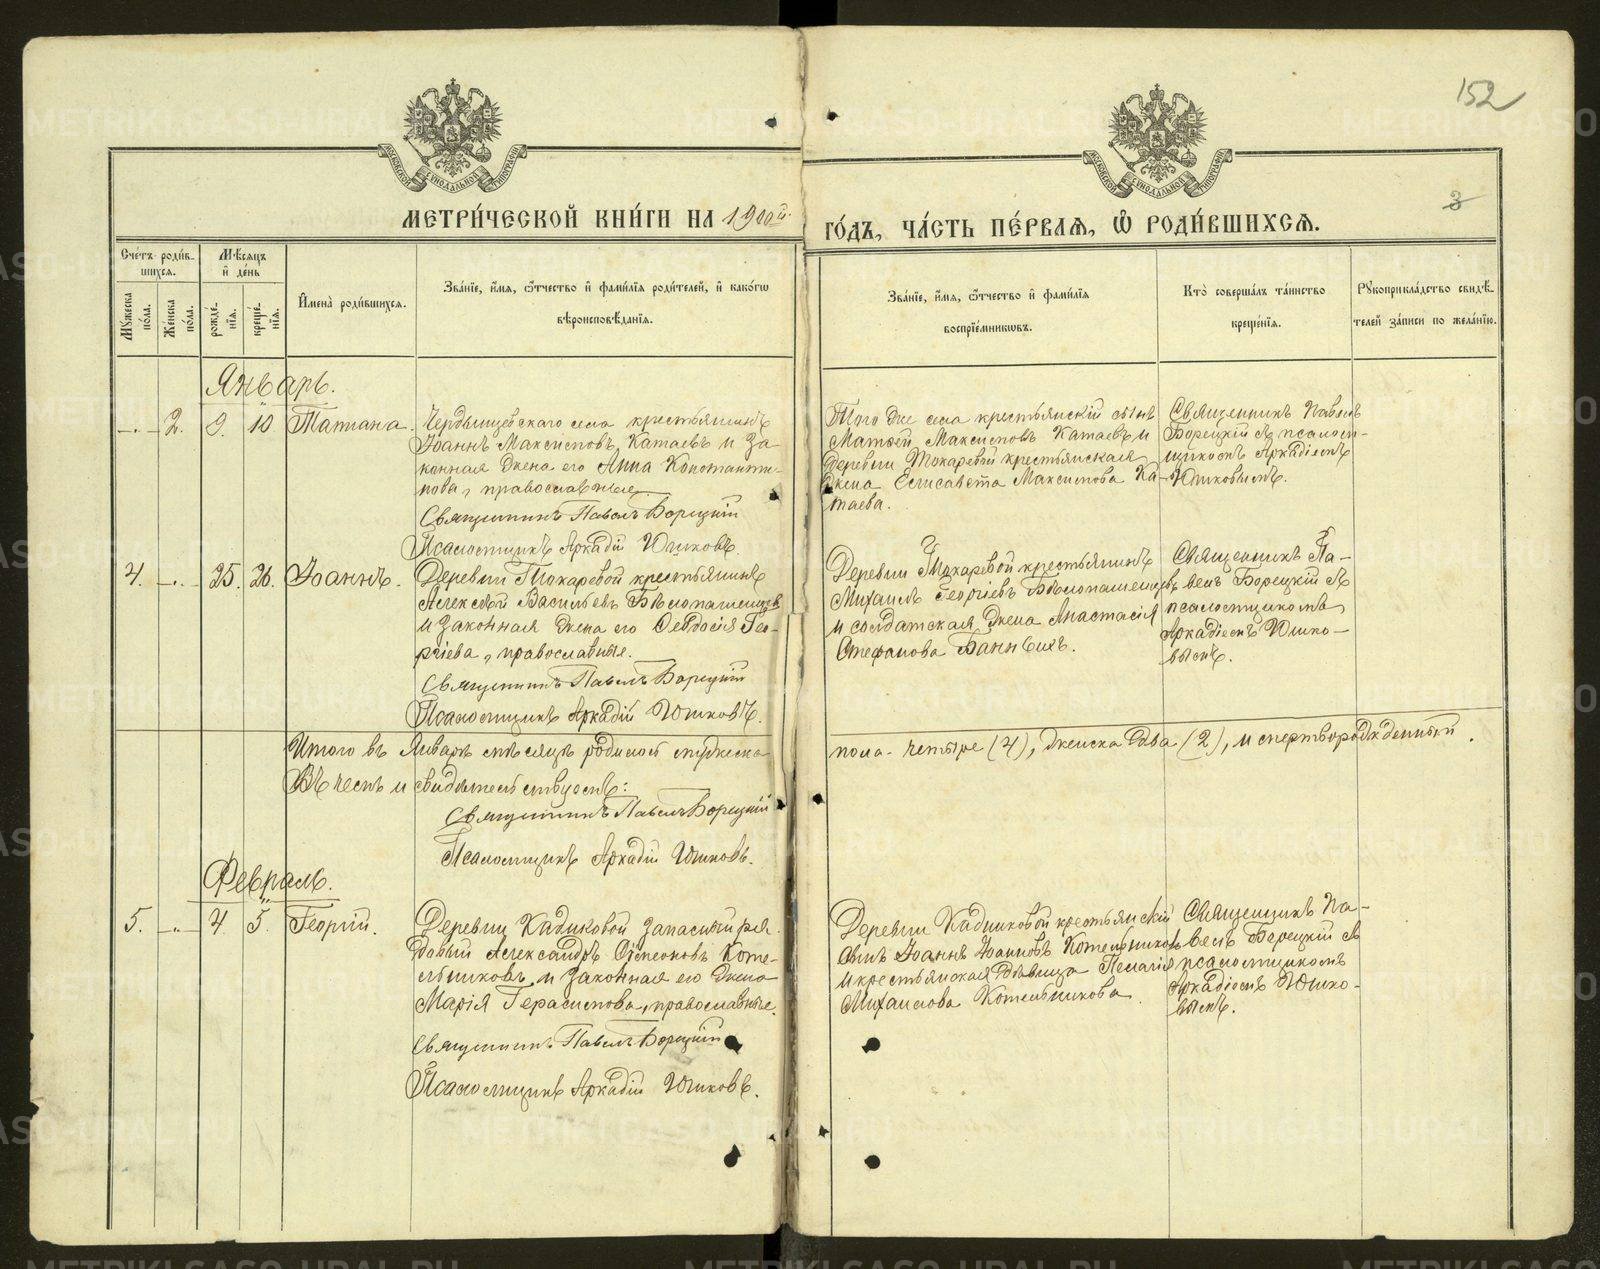 152
3
МОСКОВСКОЙ СѴНОДАЛЬНОЙ ТИПОГРАФІИ
МОСКОВСКОЙ СѴНОДАЛЬНОЙ ТИПОГРАФІИ
МЕТРИ́ЧЕСКОЙ КНИ́ГИ НА 1900й.
ГО́ДЪ, ЧА́СТЬ ПЕ́РВАЯ, Ѡ҆ РОДИ́ВШИХСЯ.
Сче́тъ роди́в-
шихся.
Мѣ́сяцъ
и҆ де́нь
Мꙋ́жеска по́ла.
Же́нска по́ла.
рожде́-
нїя.
креще́-
нїя.
И҆мена̀ роди́вшихся.
Зва́нїе, и҆́мя, ѻ҆́тчество и҆ фами́лїя роди́телей, и҆ како́гѡ
вѣроисповѣ́данїя.
Зва́нїе, и҆́мя, ѻ҆́тчество и҆ фами́лїя
воспрїе́мникѡвъ.
Кто̀ соверша́лъ та́инство
креще́нїя.
Рꙋкоприкла́дство свидѣ́-
телей за́писи по жела́нїю.
Январь.
-.- 2. 9. 10 Татиана.
крестьянинъ
Іоаннъ Максимовъ Катаевъ и за
конная жена его Анна Константи-
нова, православные
Священникъ Павелъ Борецкій
Псаломщикъ Аркадій Юшковъ.
Того же села крестьянскій сынъ
Матѳей Максимовъ Катаевъ и
деревни Токаревой крестьянская
жена Елисавета Максимова Ка-
таева.
Священникъ Павелъ
Борецкій съ псалом-
щикомъ Аркадіемъ
Юшковымъ.
4. -.- 25. 26. Іоаннъ.
Деревни Токаревой крестьянинъ
Алексѣй Васильевъ Бѣлопашенцевъ
и законная жена его Евдосія Гео-
ргіева, православные.
Священникъ Павелъ Борецкій
Псаломщикъ Аркадій Юшковъ.
Деревни Токаревой крестьянинъ
Михаилъ Георгіевъ Бѣлопашенцевъ
и солдатская жена Анастасія
Стефанова Банныхъ.
Священникъ Па-
велъ Борецкій съ
псаломщикомъ
Аркадіемъ Юшко-
вымъ.
Итого въ Январѣ мѣсяцѣ родилось мужеска
пола - четыре (4), женска два (2), и мертворожденный.
Въ чемъ и свидѣтельствуютъ:
Священникъ Павелъ Борецкій
Псаломщикъ Аркадій Юшковъ.
Февраль.
5. -.- 4. 5. Георгій.
Деревни Кадниковой запасный ря
довый Александръ Сѷмеоновъ Коте-
льниковъ и законная его жена
Марія Герасимова, православные.
Священникъ Павелъ Борецкій
Псаломщикъ Аркадій Юшковъ.
Деревни Кадниковой крестьянскій
сынъ Іоаннъ Іоанновъ Котельниковъ
и крестьянская дѣвица Пелагія
Михаилова Котельникова.
Священникъ Па-
велъ Борецкій съ
псаломщикомъ
Аркадіемъ Юшко-
вымъ.
METRIKI.GASO-URAL.RU